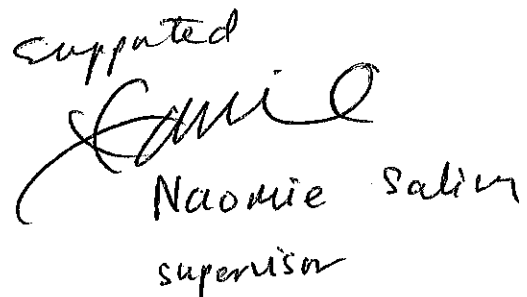 supported
Naomie Salim
supervisor